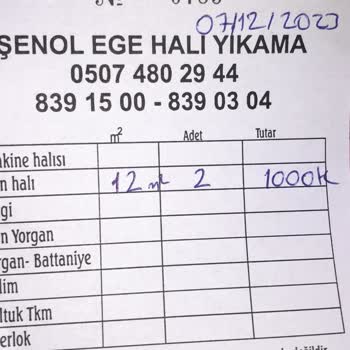 07/12/2023
ŞENOL EGE HALI YIKAMA
0507 480 29 44
839 15 00 - 839 03 04
m² Adet Tutar
akine halısı
n halı 12 m² 2 1000 tl
gi
n Yorgan
rgan- Battaniye
lim
ltuk Tkm
erlok